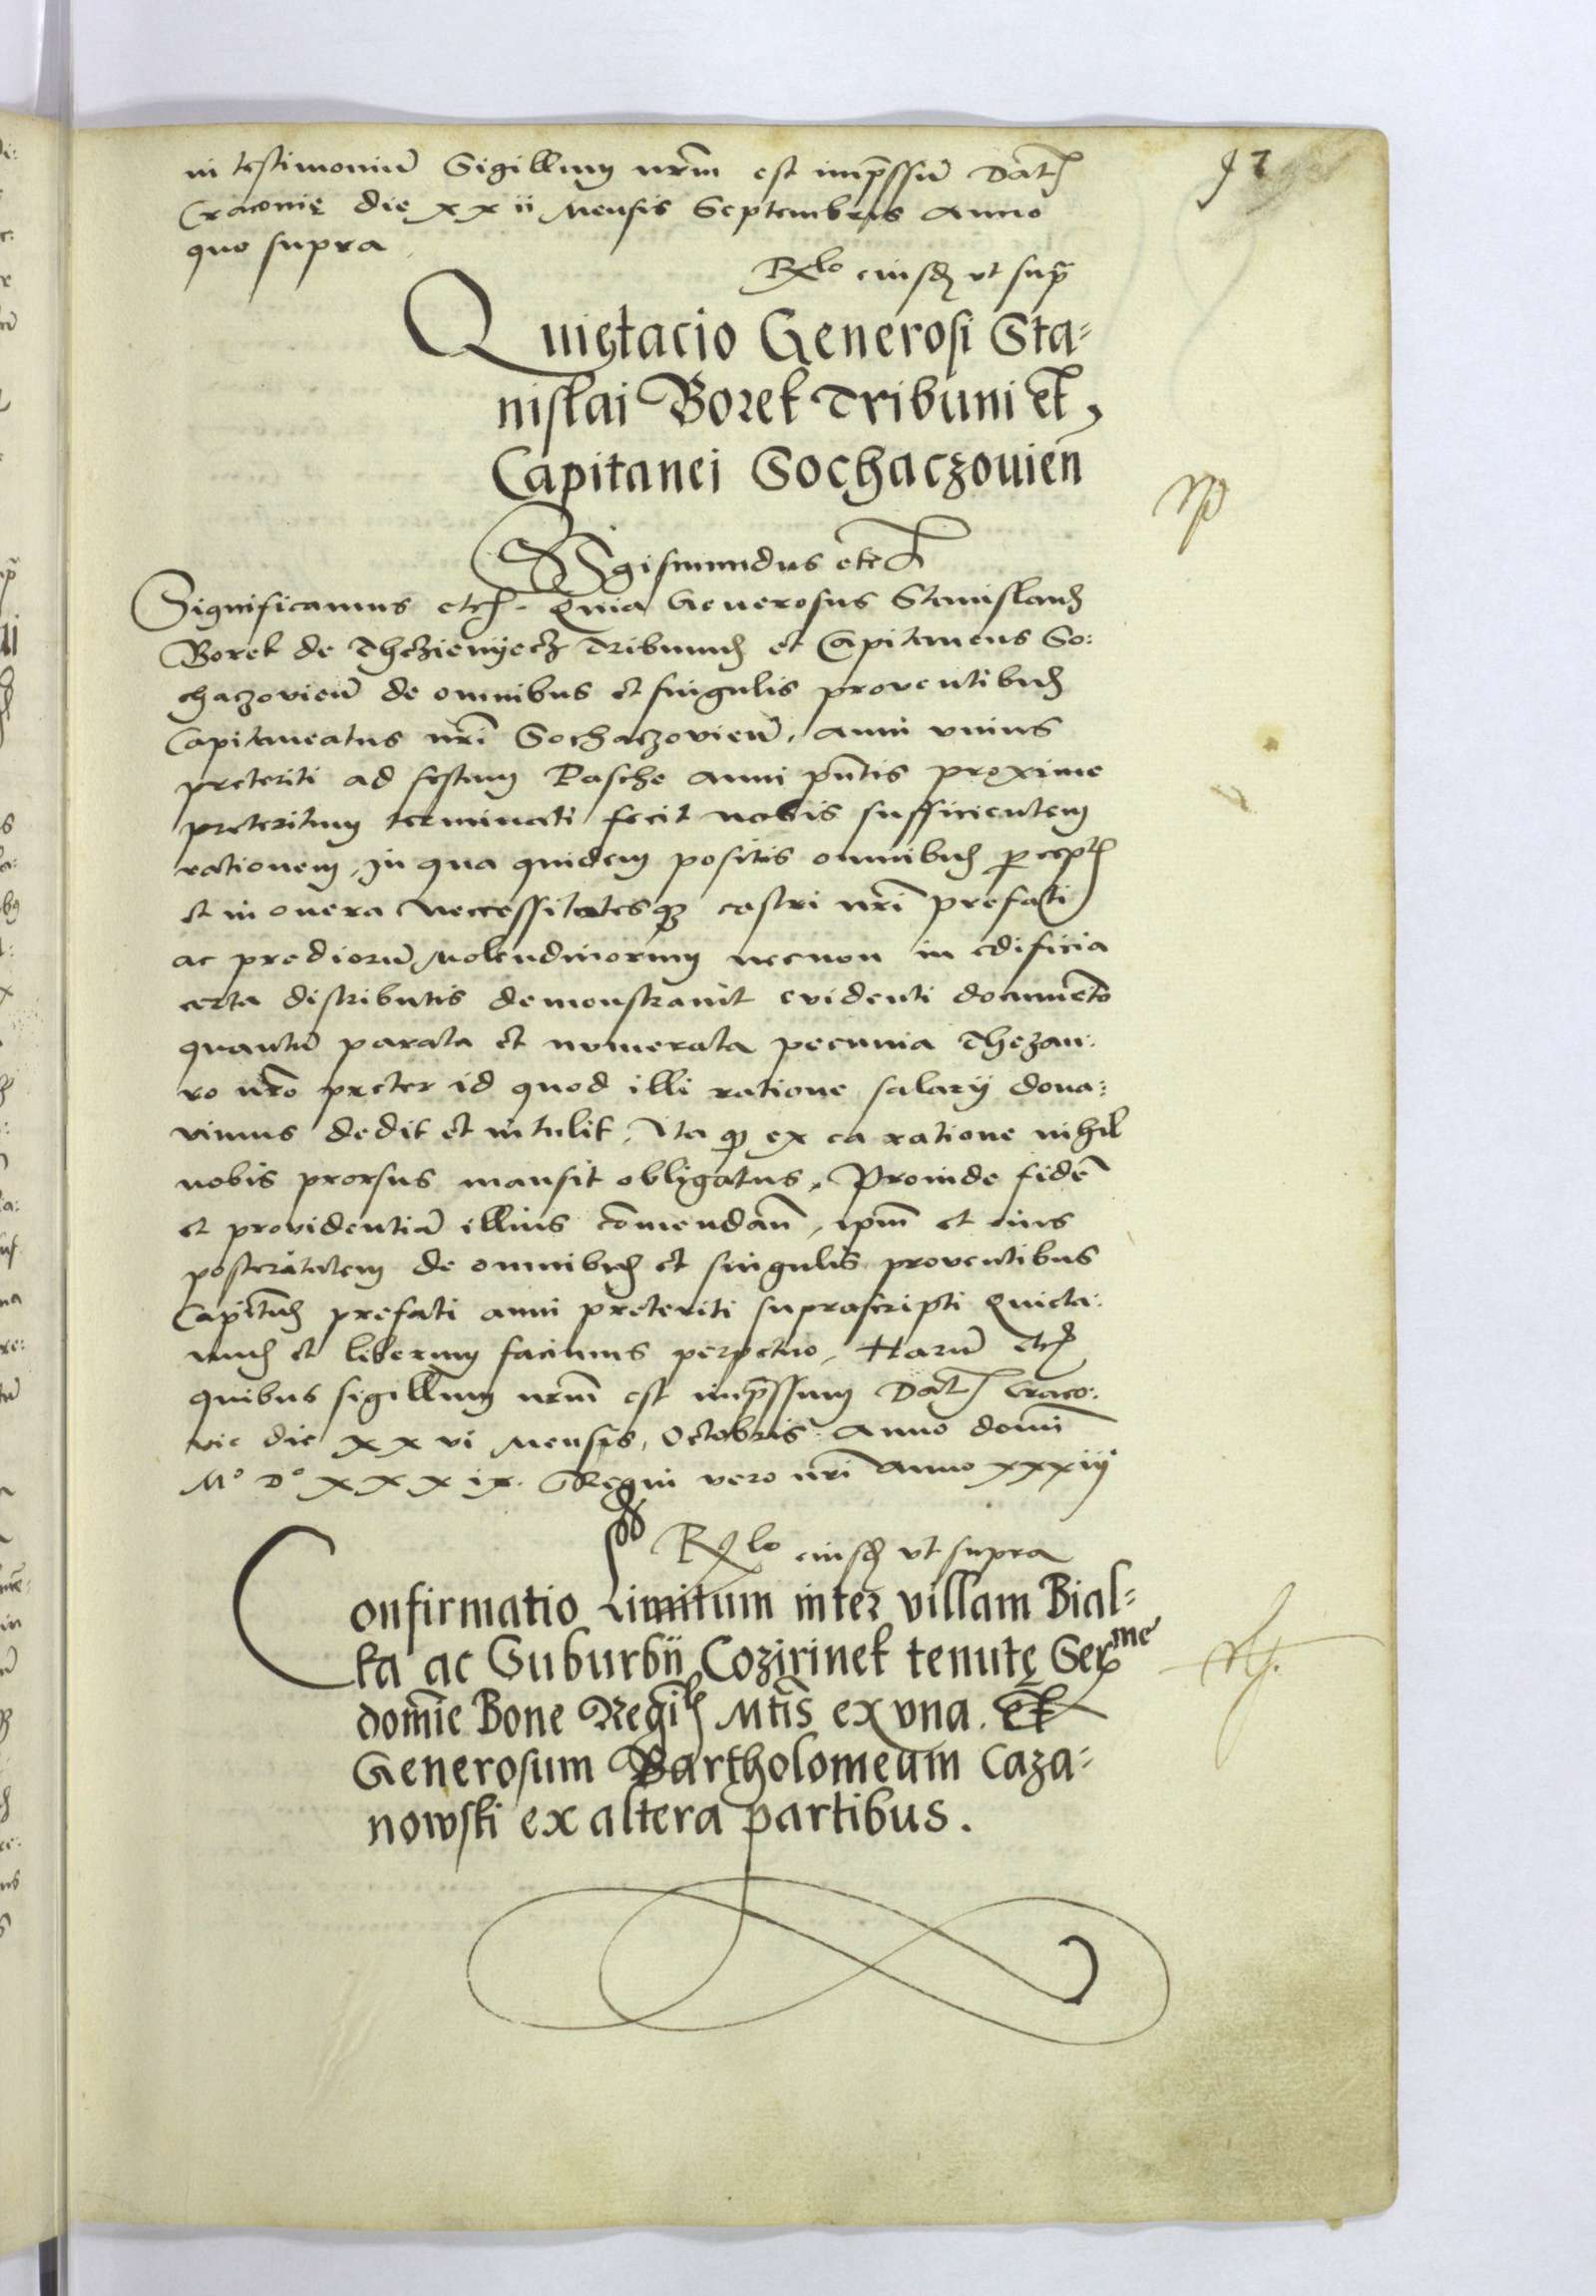 in testimoniū Sigillum nr̄m est imp̄ssū Dat
Cracovię die xxii Mensis Septembris Anno
quo supra
Rłlo eiusdē ut sup̄
Quietacio Generosi Sta=
nislai Borek Tribuni et
Capitanei Sochaczovien̄
Sigismundus etc
Significamus etc. Quia Generosus Stanislaus
Borek de Thczienyecz Tribunus et Capitaneus So:
chaczovien̄ de omnibus et singulis proventibus
Capitaneatus nr̄i Sochaczovien̄, anni unius
preteriti ad festum Pasche anni pn̄tis proxime
preteritum terminati fecit nobis sufficientem
rationem, In qua quidem positis omnibus percept
et in onera Necessitatesq castri nr̄i prefati
ac prediorū Molendinorum necnon in edificia
certa distributis demonstravit evidenti documēto
quantū parata et numerata pecunia Thezau:
ro nr̄o preter id quod illi ratione salarij dona:
vimus dedit et intulit, Ita q ex ea ratione nihil
nobis prorsus mansit obligatus, Proinde fidē
et providentiā illius cōmendan̄, ipm̄ et eius
posteritatem de omnibus et singulis proventibus
Capitn̄s prefati anni preteriti suprascripti Quieta:
mus et liberum facimus perpetuo, Harū etc
quibus sigillum nr̄m est imp̄ssum Dat Craco:
vie die xxvi Mensis, Octobris Anno domī
Mº Dº xxxix. Regni vero nr̄i Anno xxxiij
Rłlo eiusdē ut supra
Confirmatio Limitum inter villam Bial=
ka ac Suburbii Cozirinek tenutę Serme
domīe Bone Regil Mtīs ex una. Et
Generosum Bartholomeum Caza=
nowski ex altera partibus.